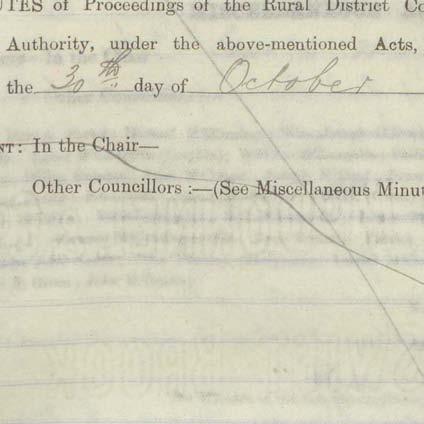 UTES of Proceedings of the Rural District Co
Authority, under the above-mentioned Acts,
the 30th day of October
NT: In the Chair—
Other Councillors :—(See Miscellaneous Minut